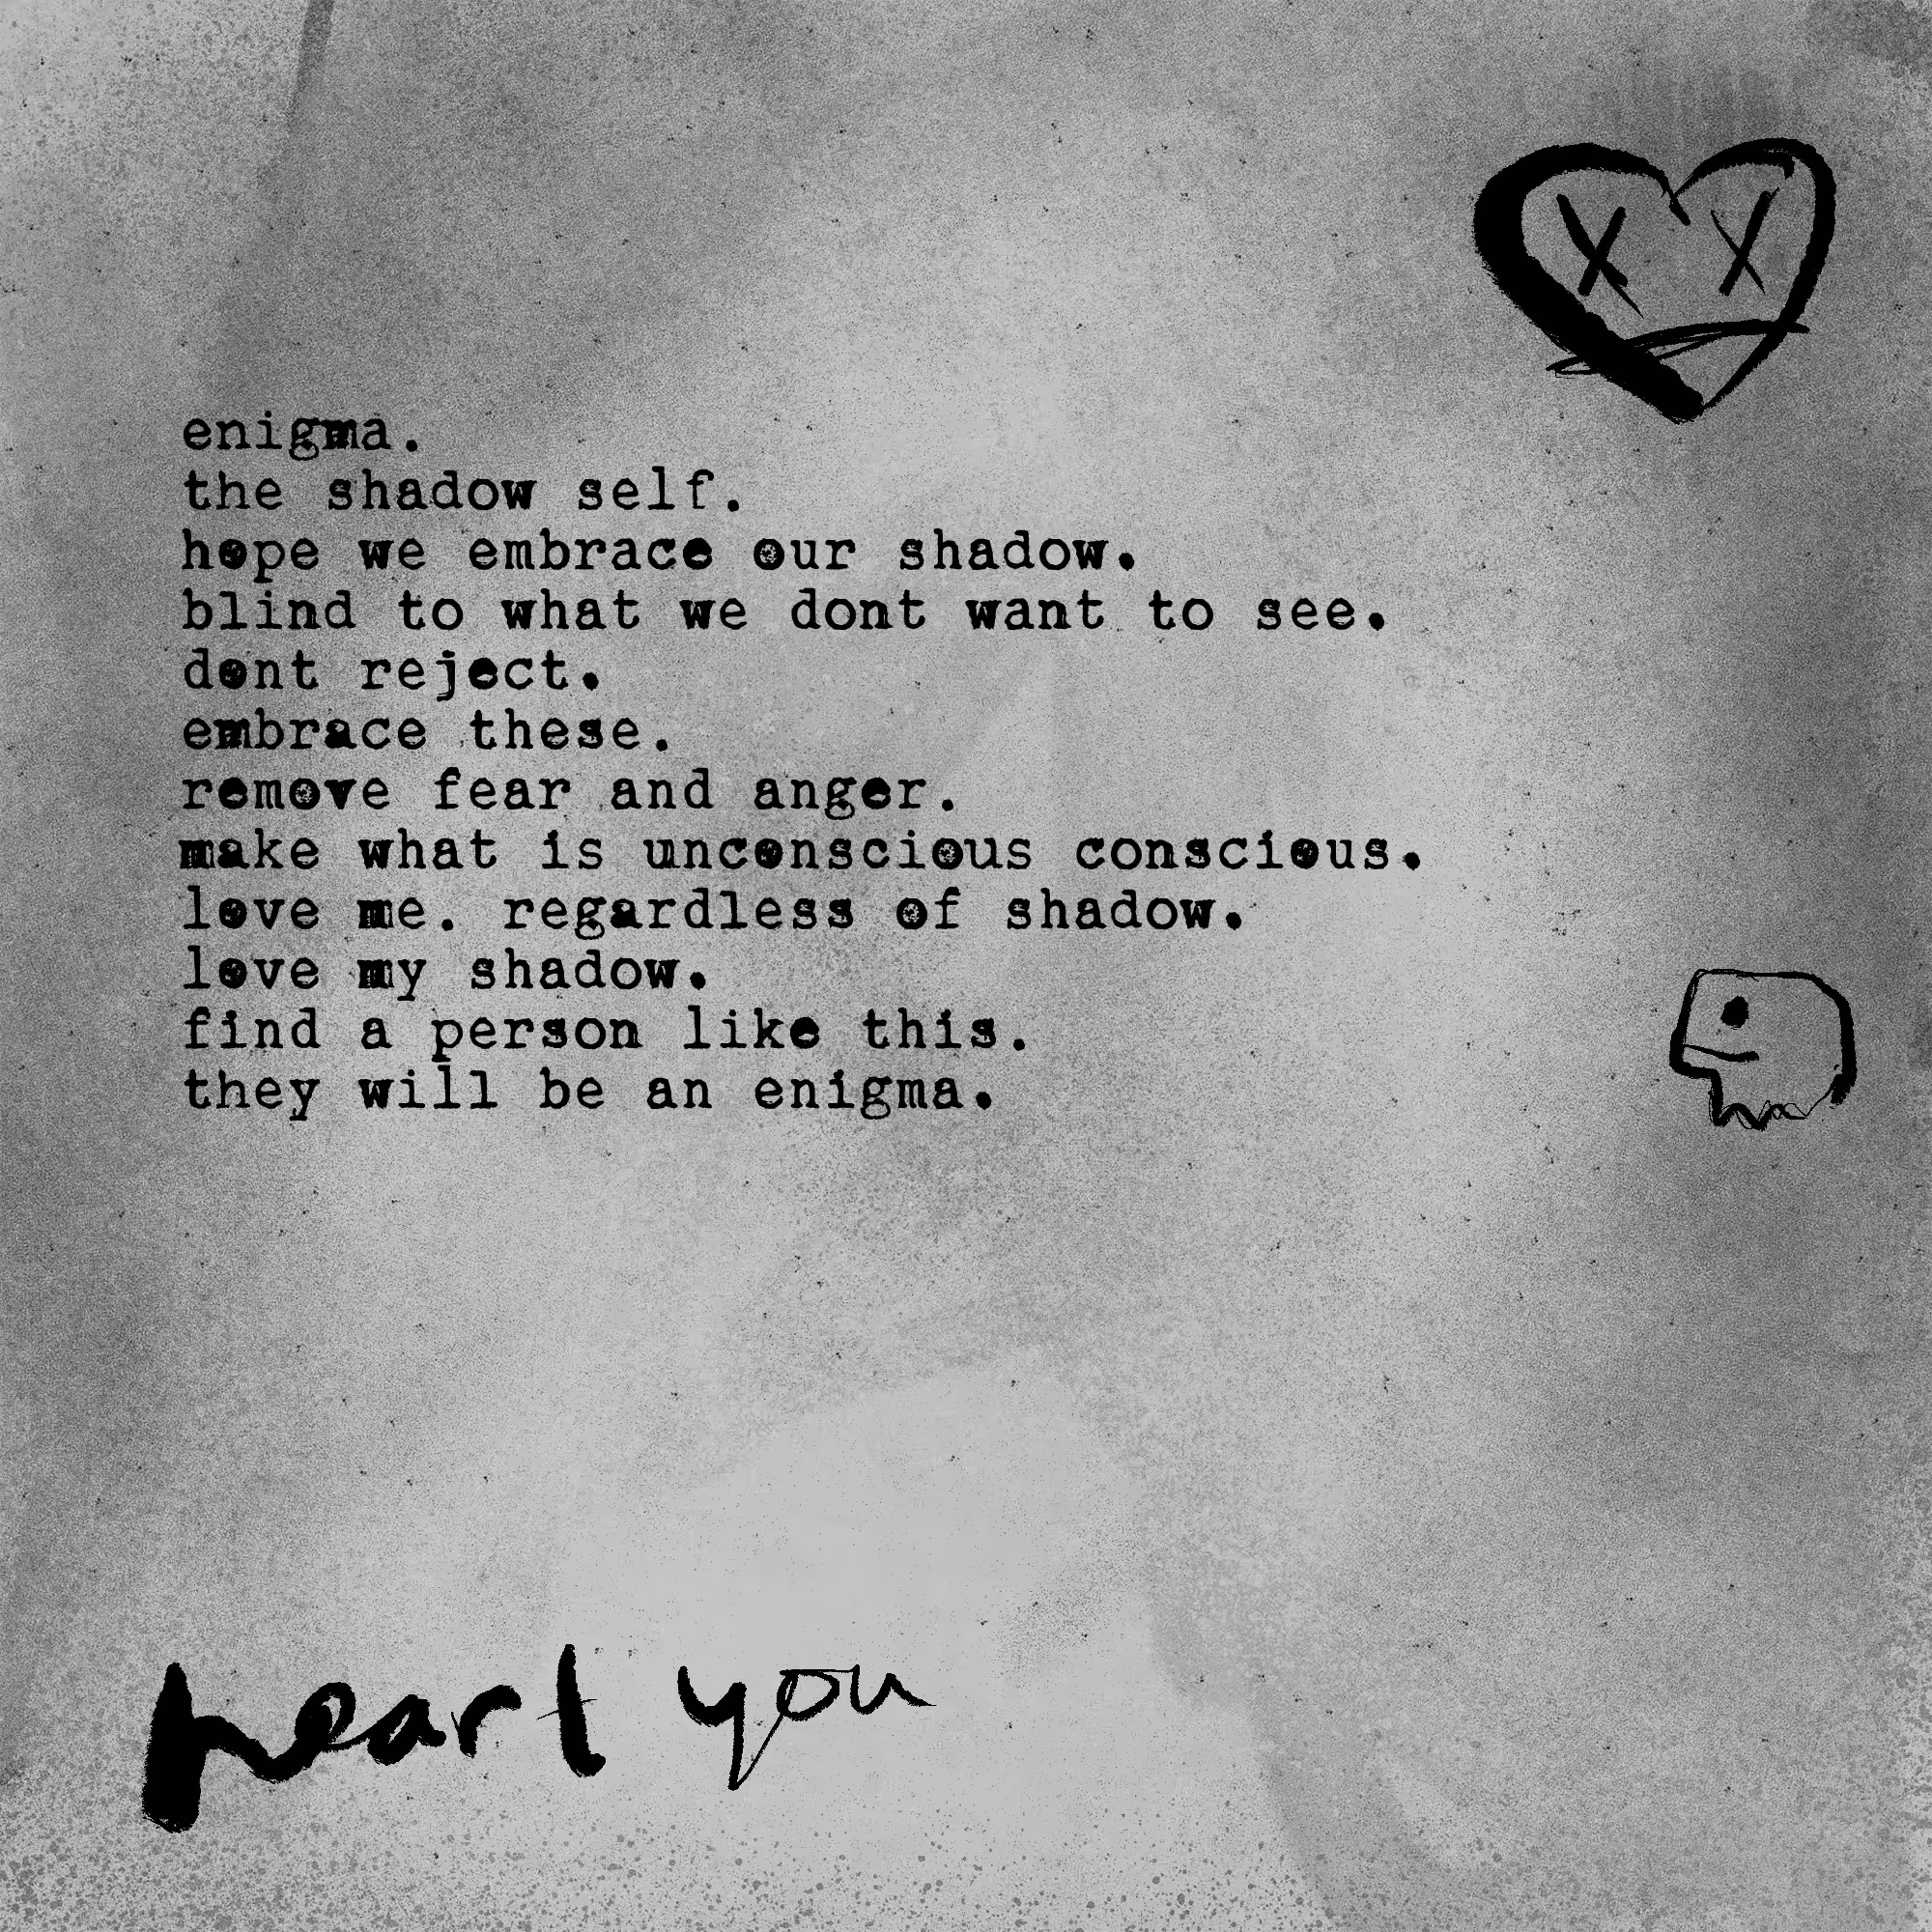 enigma.
the shadow self.
hope we embrace our shadow.
blind to what we dont want to see.
dont reject.
embrace these.
remove fear and anger.
make what is unconscious conscious.
love me. regardless of shadow.
love my shadow.
find a person like this.
they will be an enigma.
heart you